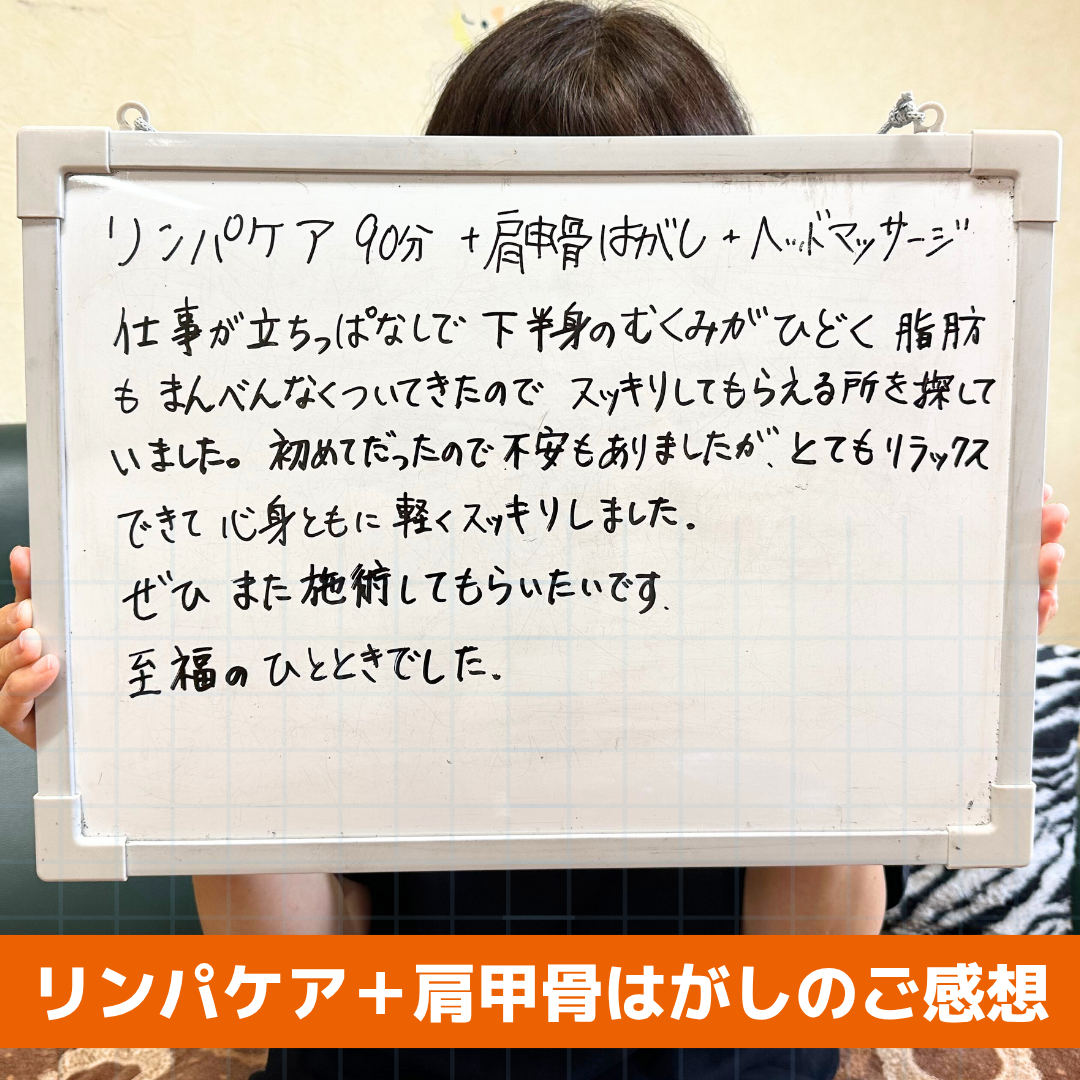 リンパケア 90分 +肩甲骨はがし+ヘッドマッサージ
仕事が立ちっぱなしで 下半身のむくみがひどく 脂肪
も まんべんなくついてきたので スッキリしてもらえる所を探して
いました。初めてだったので不安もありましたが、とてもリラックス
できて 心身ともに 軽くスッキリしました。
ぜひ また施術してもらいたいです。
至福の ひとときでした。
リンパケア+肩甲骨はがしのご感想